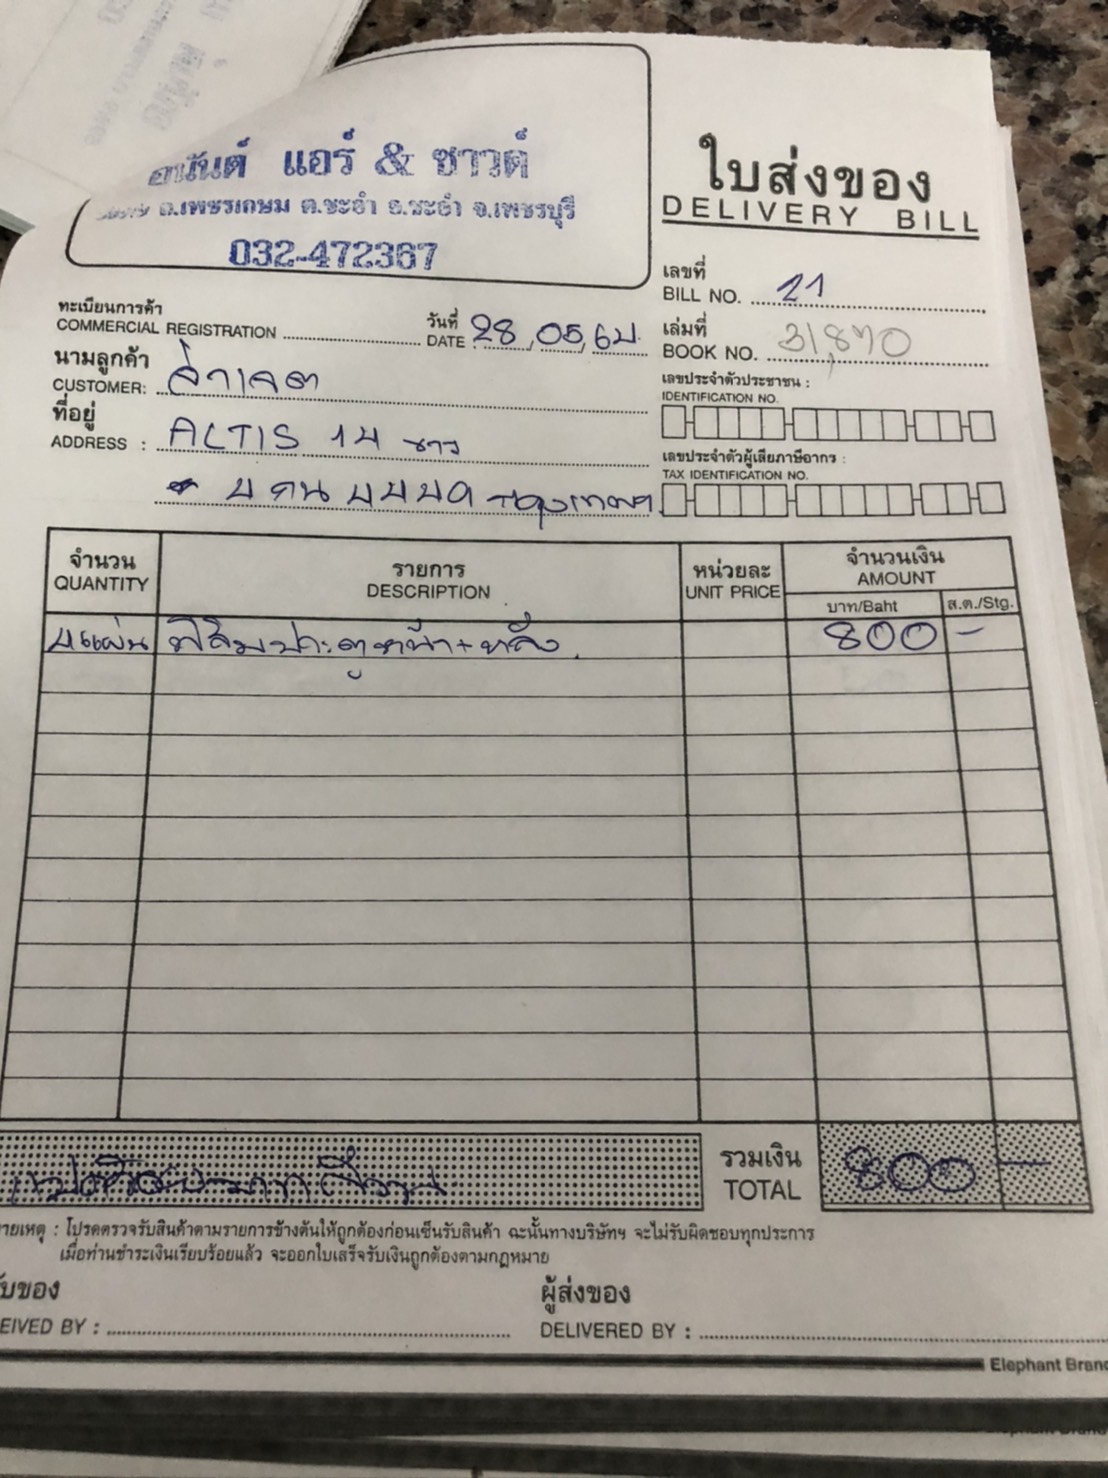 แอร์ & ซาวด์
ถ.เพชรเกษม ต.ชะอำ อ.ชะอำ จ.เพชรบุรี
032-472367
ใบส่งของ
DELIVERY BILL
เลขที่
BILL NO. 21
ทะเบียนการค้า
COMMERCIAL REGISTRATION
วันที่
DATE 28,05,62
เล่มที่
BOOK NO. 31,870
นามลูกค้า
CUSTOMER:
เลขประจำตัวประชาชน :
IDENTIFICATION NO.
ที่อยู่
ADDRESS : ALTIS 14 ขาว
เลขประจำตัวผู้เสียภาษีอากร :
TAX IDENTIFICATION NO.
กรุงเทพฯ
จำนวน
QUANTITY
รายการ
DESCRIPTION
หน่วยละ
UNIT PRICE
จำนวนเงิน
AMOUNT
บาท/Baht
ส.ต./Stg.
4แผ่น ฟิล์มประตูหน้า+หลัง 800 -
รวมเงิน
TOTAL
800 -
ายเหตุ : โปรดตรวจรับสินค้าตามรายการข้างต้นให้ถูกต้องก่อนเซ็นรับสินค้า ฉะนั้นทางบริษัทฯ จะไม่รับผิดชอบทุกประการ
เมื่อท่านชำระเงินเรียบร้อยแล้ว จะออกใบเสร็จรับเงินถูกต้องตามกฎหมาย
ับของ
EIVED BY :
ผู้ส่งของ
DELIVERED BY :
Elephant Brand